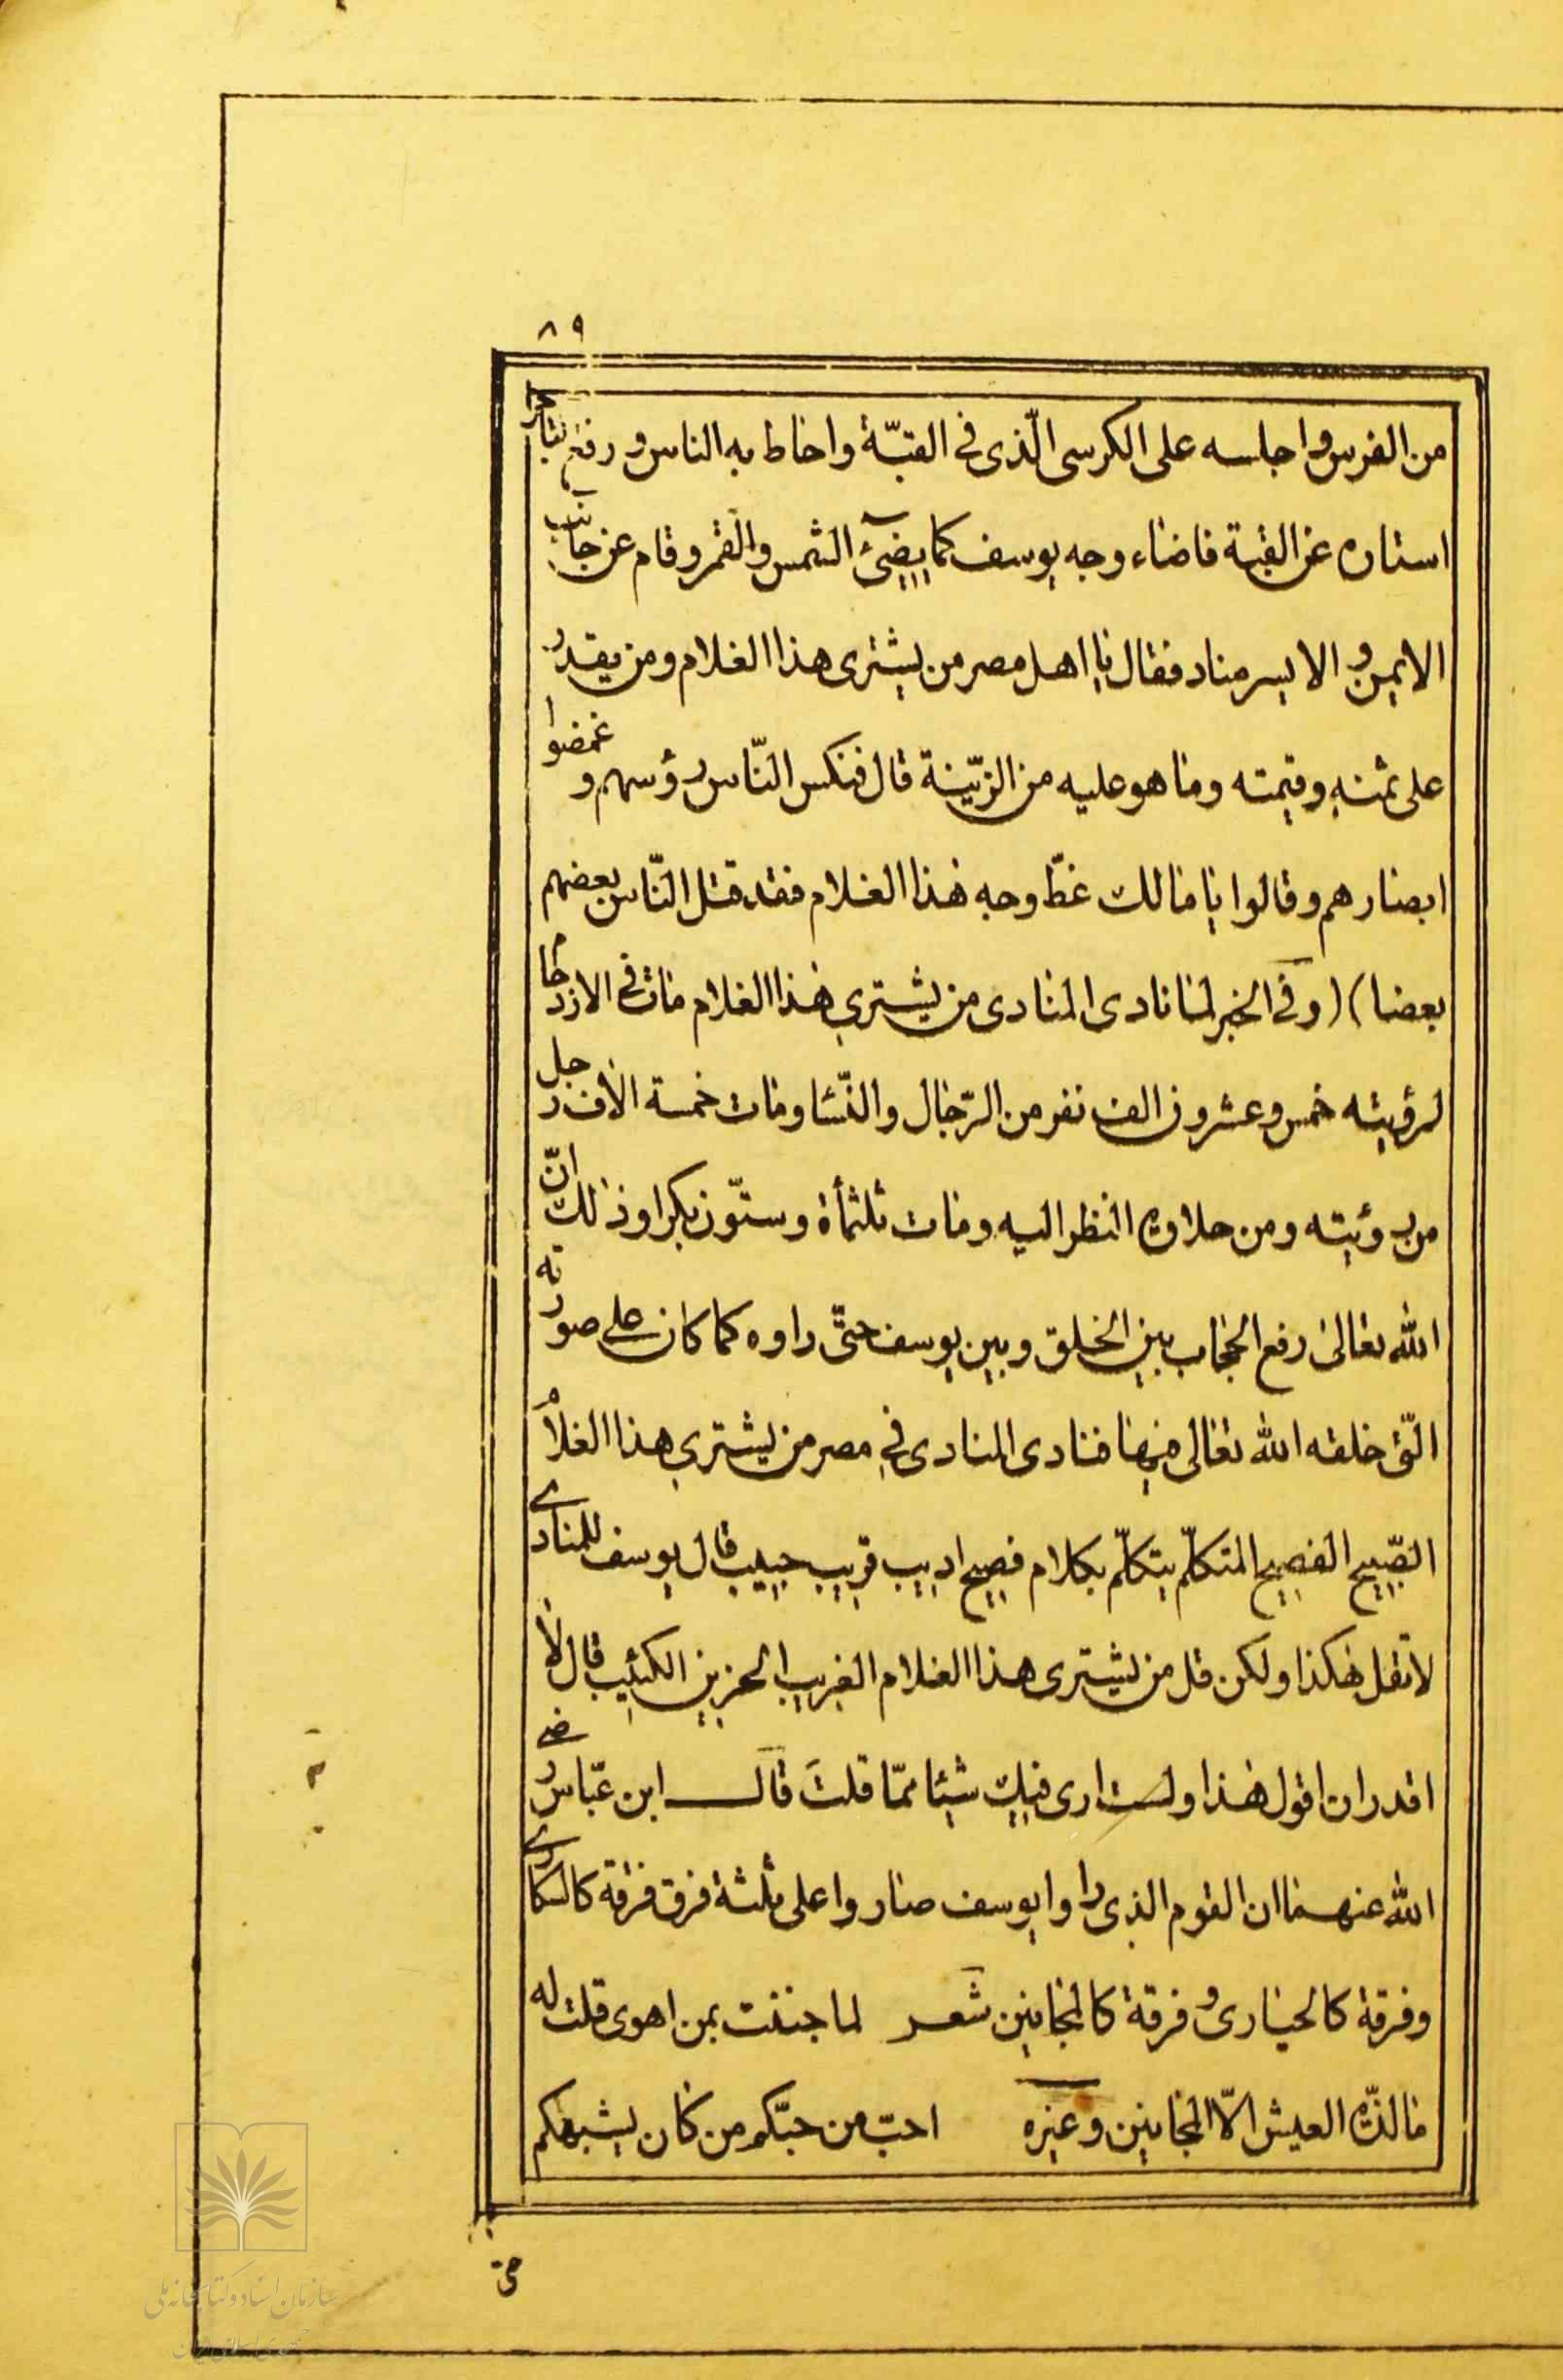 ۸۹
من الفرس واجلسه على الكرسى الّذى فى القبّة واحاط به الناس ورفع التاجر
استاره عن القبة فاضاء وجه يوسف كما يضئ الشمس والقمر وقام عن جانب
الايمن والايسر مناد فقال يا اهل مصر من يشترى هذا الغلام ومن يقدر
على ثمنه وقيمته وما هو عليه من الزّينة قال فنكس النّاس رؤسهم و غمضوا
ابصارهم وقالوا يا مالك غطّ وجه هذا الغلام فقد قتل النّاس بعضهم
بعضا) (وفى الخبر لما نادى المنادى من يشترى هذا الغلام مات فى الازدحام
لرؤيته خمس وعشرون الف نفر من الرّجال والنّسا ومات خمسة الاف رجل
من رؤيته ومن حلاوة النظر اليه ومات ثلثمأة وستّون بكرا وذلك انّ
الله تعالى رفع الحجاب بين الخلق وبين يوسف حتّى راوه كما كان على صورته
الّتى خلقه الله تعالى فيها فنادى المنادى فى مصر من يشترى هذا الغلام
الصّبيح الفصيح المتكلّم يتكلّم بكلام فصيح اديب قريب حبيب قال يوسف للمنادى
لا تقل هكذا ولكن قل من يشترى هذا الغلام الغريب الحزين الكئيب قال لا
اقدر ان اقول هذا ولست ارى فيك شيئا ممّا قلتَ قال ابن عبّاس رضى
الله عنهما ان القوم الذى راوا يوسف صاروا على ثلثة فرق فرقة كالسكارى
وفرقة كالحيارى وفرقة كالمجانين شعر لما جننت بمن اهوى قلت له
ما لذّة العيش الّا المجانين وغيره احبّ من حبّكم من كان يشبهكم
حتى
سازمان اسناد و کتابخانه ملی
جمهوری اسلامی ایران